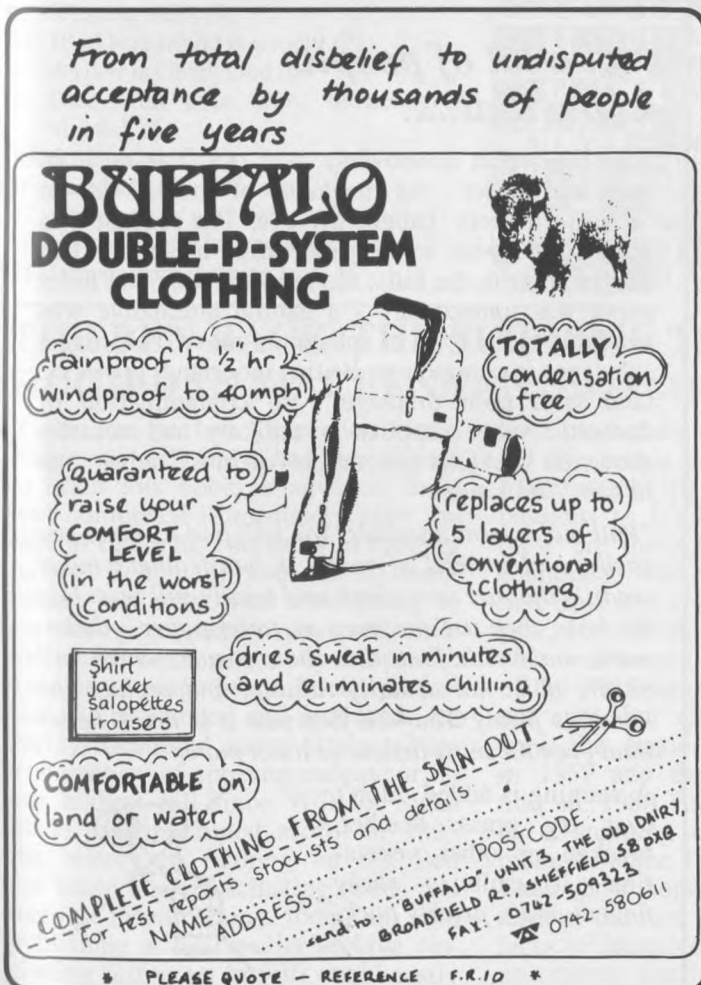 From total disbelief to undisputed
acceptance by thousands of people
in five years
BUFFALO
DOUBLE-P-SYSTEM
CLOTHING
rainproof to 1/2 hr
windproof to 40mph
TOTALLY
condensation
free
guaranteed to
raise your
COMFORT
LEVEL
(in the worst
conditions
replaces up to
5 layers of
Conventional
Clothing
shirt
jacket
salopettes
trousers
dries sweat in minutes
and eliminates chilling
COMFORTABLE on
land or water
COMPLETE CLOTHING FROM THE SKIN OUT
for test reports, stockists and details
NAME
ADDRESS
POSTCODE
send to: "BUFFALO", UNIT 3, THE OLD DAIRY,
BROADFIELD RD, SHEFFIELD S8 0XQ
FAX: 0742-509323
☎ 0742-580611
* PLEASE QUOTE - REFERENCE F.R.10 *